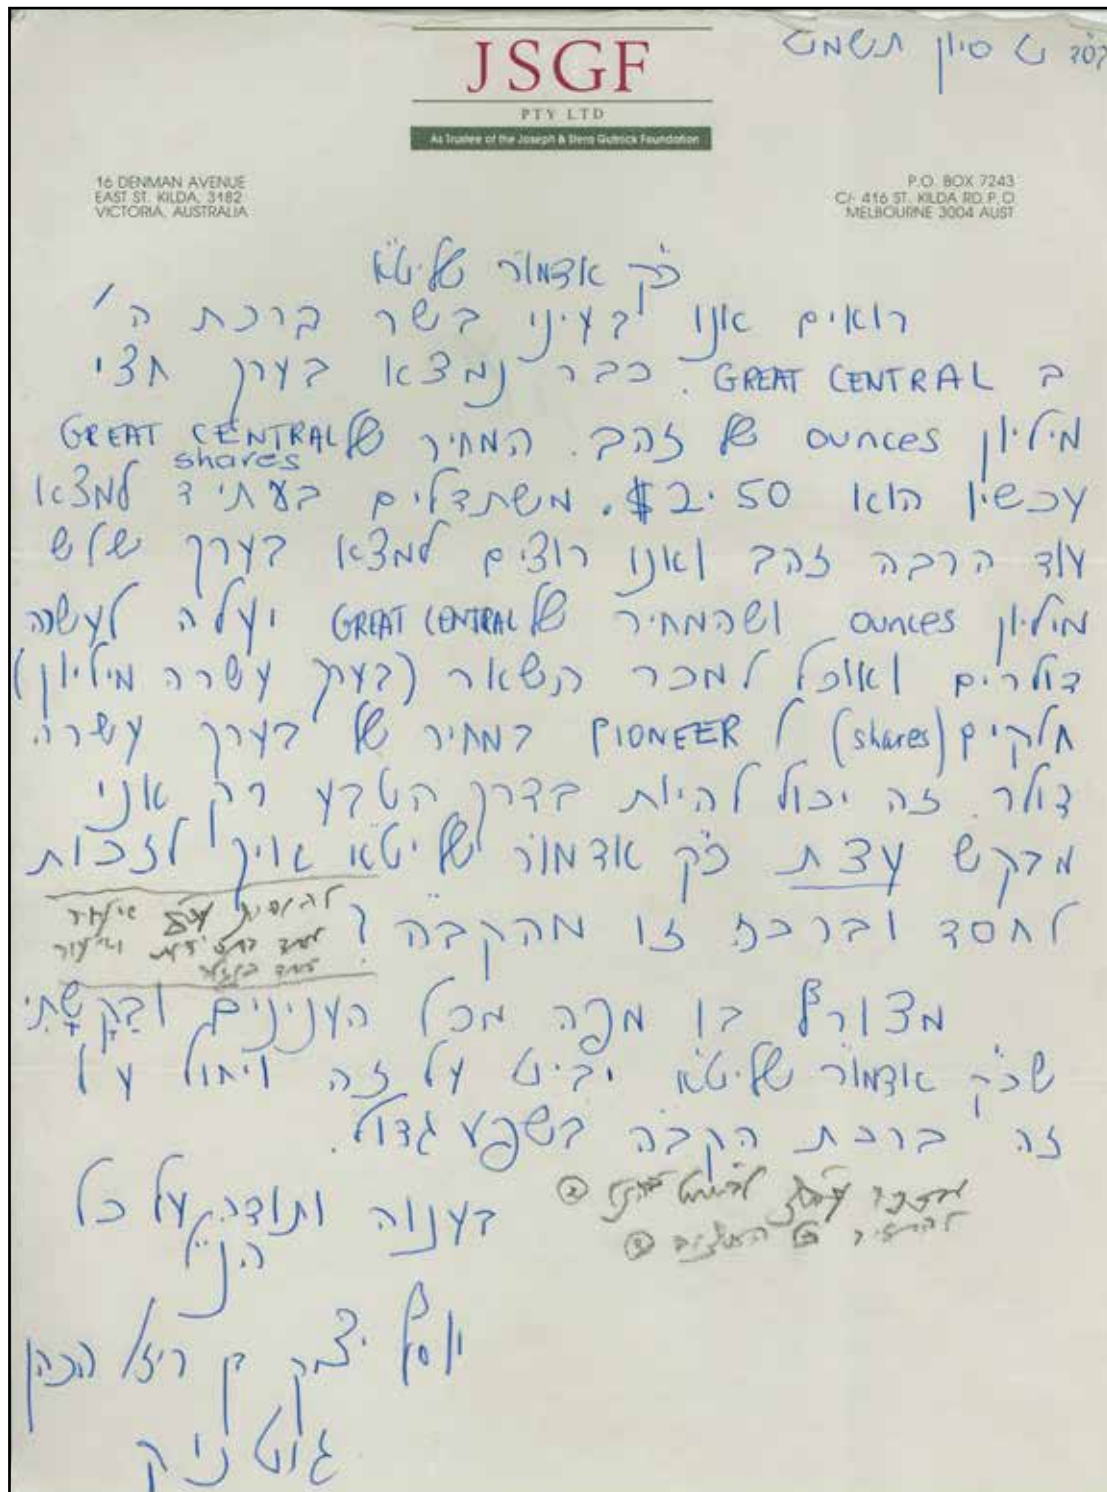 בס"ד ט סיון תשמט
JSGF
PTY LTD
As Trustee of the Joseph & Stera Gutnick Foundation
16 DENMAN AVENUE
EAST ST. KILDA, 3182
VICTORIA, AUSTRALIA
P.O. BOX 7243
C/- 416 ST. KILDA RD. P.O.
MELBOURNE 3004 AUST
כ"ק אדמו"ר שליט"א
רואים אנו בעיני בשר ברכת ה'
ב GREAT CENTRAL. כבר נמצא בערך חצי
מיליון ounces של זהב. המחיר של GREAT CENTRAL
shares
עכשיו הוא $2.50. משתדלים בעתיד למצא
עוד הרבה זהב ואנו רוצים למצא בערך שלש
מיליון ounces ושהמחיר של GREAT CENTRAL יעלה לעשרה
דולרים ואוכל למכר השאר (בערך עשרה מיליון)
חלקים (shares) ל PIONEER במחיר של בערך עשרה
דולר. זה יכול להיות בדרך הטבע רק אני
מבקש עצת כ"ק אדמו"ר שליט"א איך לזכות
לחסד וברכה זו מהקב"ה?
מצורף בו מפה מכל הענינים ובקשתי
שכ"ק אדמו"ר שליט"א יביט על זה ויחול על
זה ברכת הקב"ה בשפע גדול.
בענוה ותודה על כל
הנ"ל
יוסף יצחק בן רייזל הכהן
גוטניק